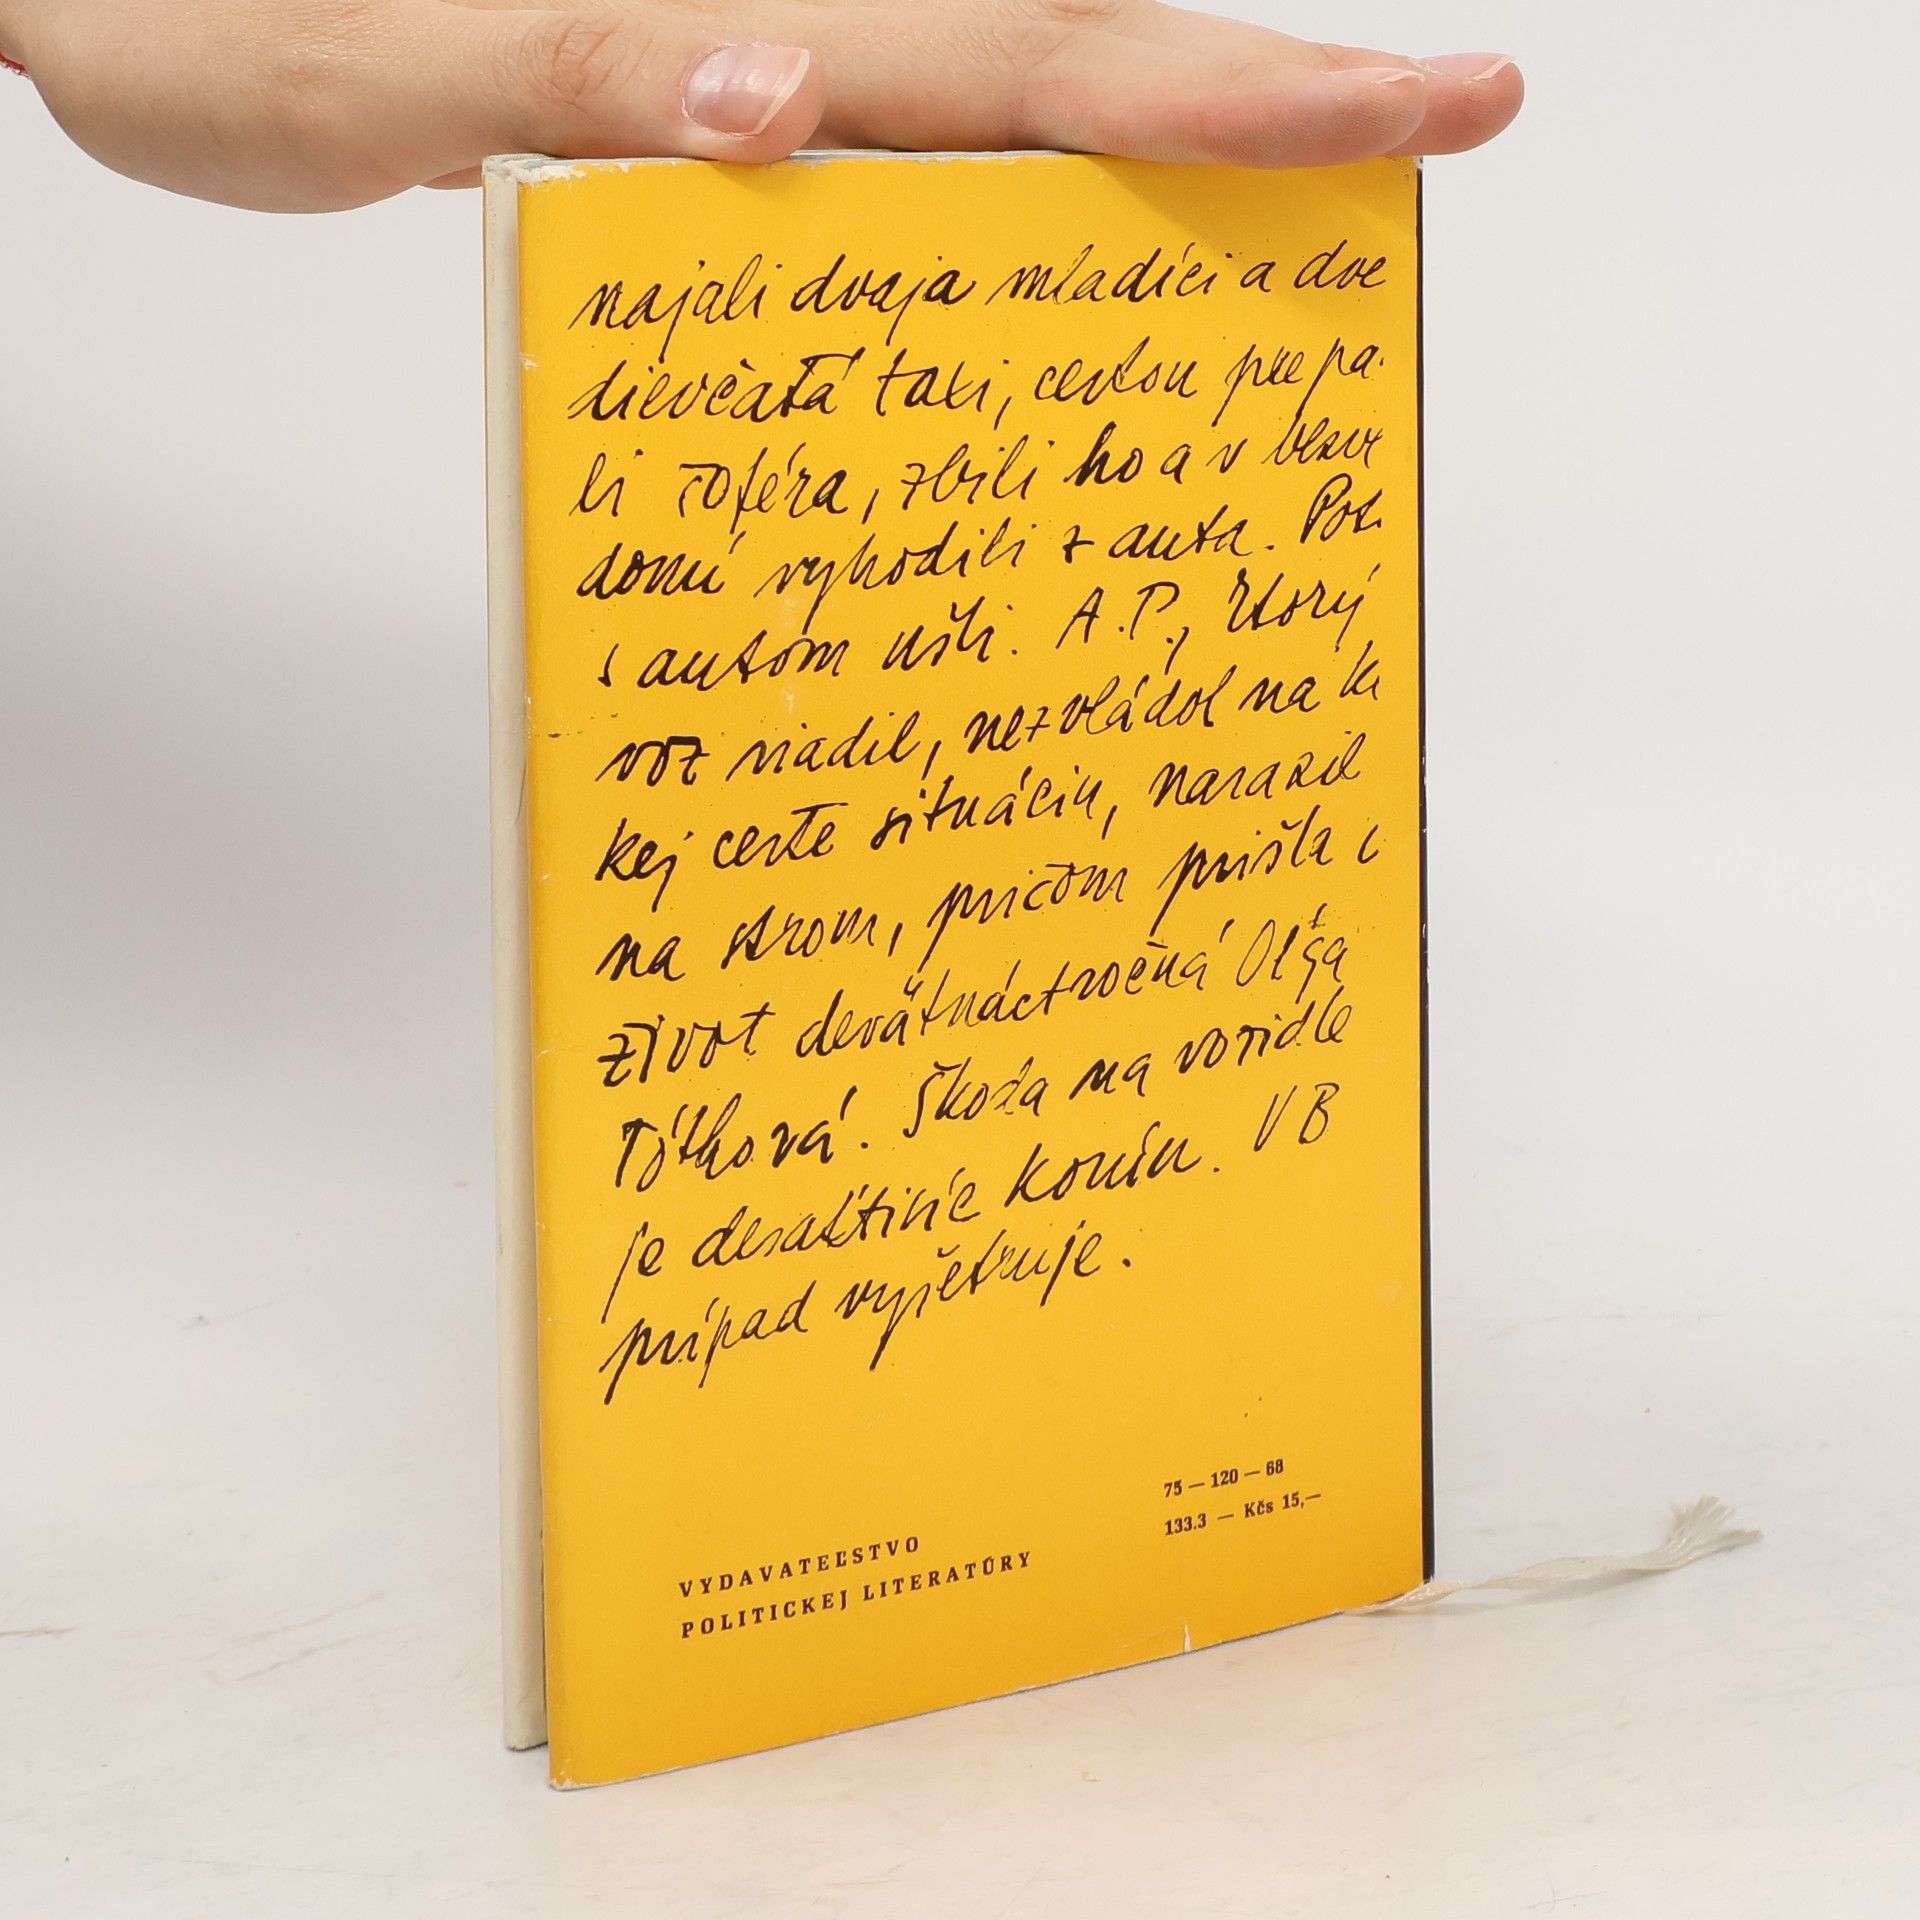 najali dvaja mladíci a dve
dievčatá taxi, cestou prepa-
li šoféra, zbili ho a v bezve
domí vyhodili z auta. Pot.
s autom ušli. A.P., ktorý
voz riadil, nezvládol na k
kej ceste situáciu, narazil
na strom, pričom prišla o
život devätnáctročná Oľga
Tóthová. Škoda na vozidle
je desaťtisíc korún. VB
prípad vyšetruje.
75 — 120 — 68
133.3 — Kčs 15,—
VYDAVATEĽSTVO
POLITICKEJ LITERATÚRY